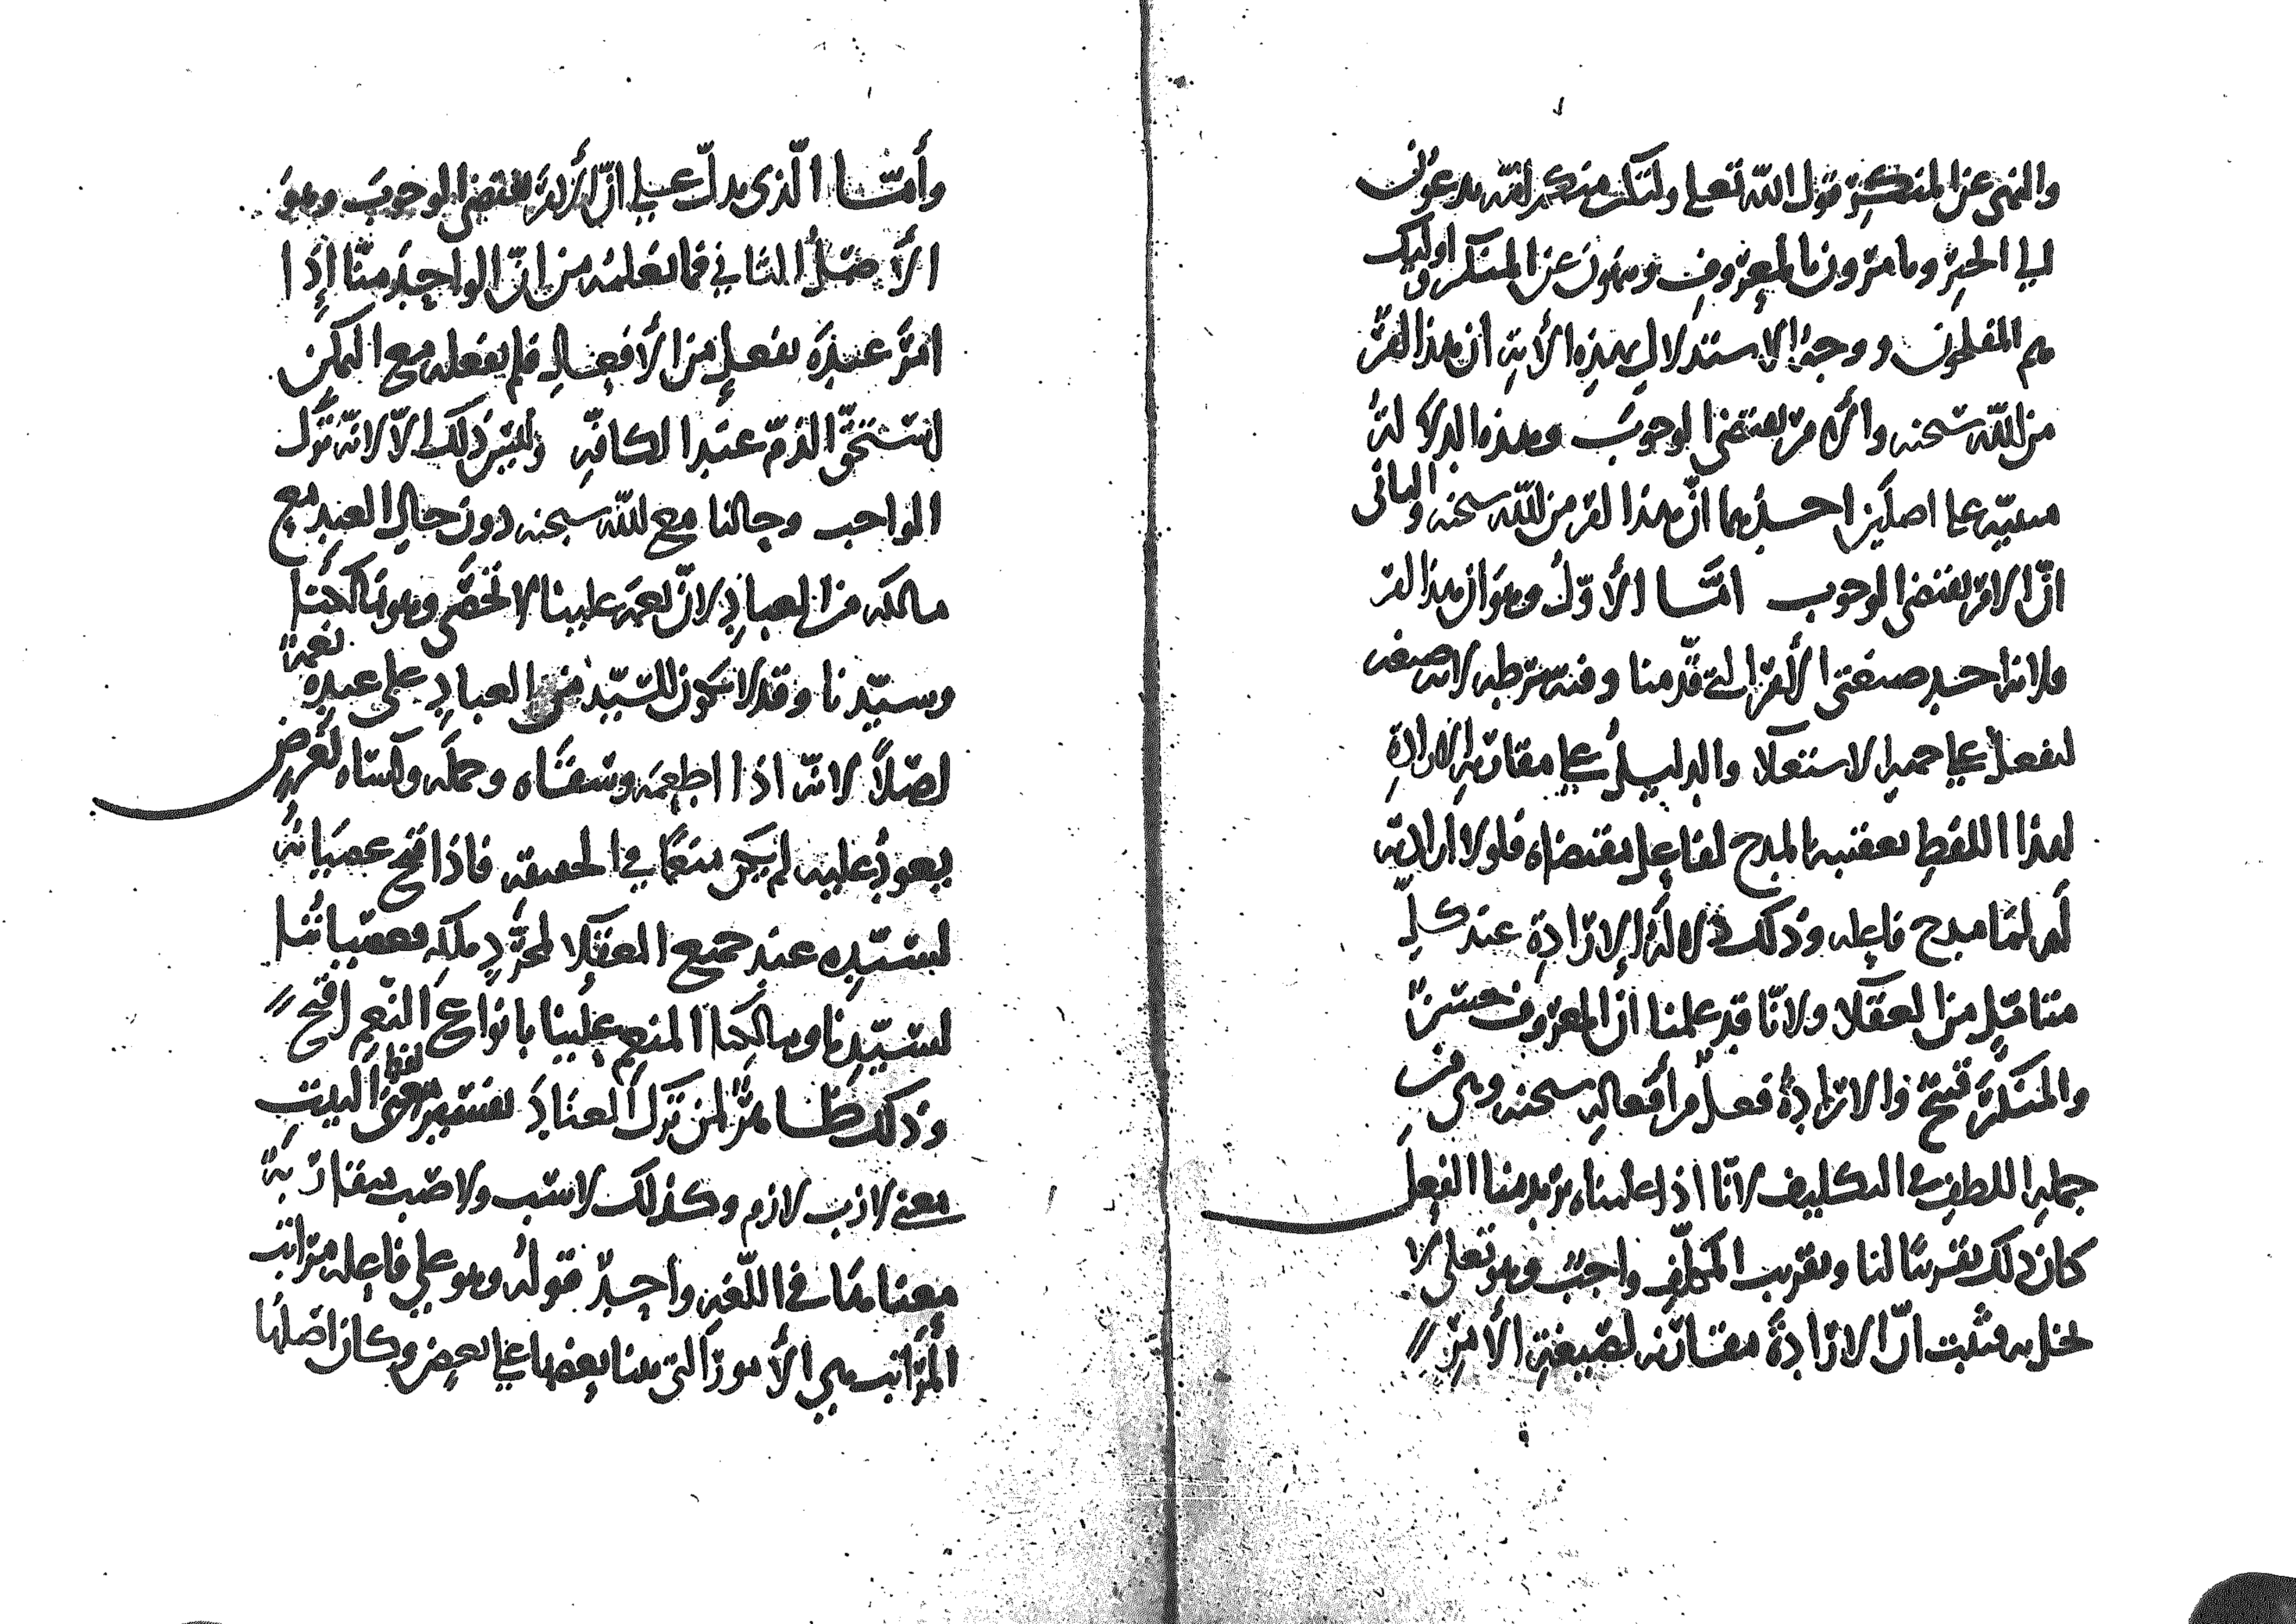 والنهي عن المنكر قول الله تعالى ولتكن منكم امة يدعون
الى الخير ويامرون بالمعروف وينهون عن المنكر واوليك
هم المفلحون ووجه الاستدلال بهذه الأية ان هذا امر
من الله سبحنه والأمر يقتضي الوجوب وهذه الدلالة
مبنيّه على اصلين احدهما انّ هذا امر من الله سبحنه والثاني
انّ الامر يقتضي الوجوب امّا الأوّل وهو ان هذا امر
فلانه احد صيغتي الأمر التي قدّمنا وفيه شرطه لانه صيغه
لتفعل على جهة الاستعلا والدليل على مقارنة الارادة
لهذا اللفظ تعقيبه بالمدح لفاعل مقتضاه فلولا ارادته
له لما مدح فاعله وذلك دلالة الإرادة عند كلّ
متامّل من العقلا ولانّا قد علمنا أن المعروف حسنٌ
والمنكر قبيح والارادة فعل من أفعاله سبحنه وهي من
جملة اللطف في التكليف لانّا اذا علمناه يريد منا الفعل
كان ذلك تقريبًا لنا وتقريب المكلّف واجب وهو تعلى لا
يخل به فثبت انّ الارادة مقارنه لصيغة الأمر
وأمّا الّذي يدلّ على انّ الأمر يقتضي الوجوب وهو
الأصل الثاني فما نعلمه من انّ الواحد منّا إذا
امر عبده بفعل من الأفعال فلم يفعله مع التمكن
استحقّ الذمّ عند الكافّه وليس ذلك الاّ لانّه ترك
الواجب وحالنا مع الله سبحنه دون حال العبد مع
مالكه من العباد لانّ نعمه علينا لا تحصى وهو مالكنا
وسيّدنا وقد لا يكون للسيّد من العباد على عبده نعمة
اصلاً لانّه اذا اطعمه وسقاه وحمله وكساه لغرض
يعود عليه لم يكن منعمًا في الحقيقه فاذا قبح عصيانه
لسيّده عند جميع العقلا لمجرّد ملكه فعصياننا
لسيّدنا ومالكنا المنعم علينا بانواع النعم اقبح
وذلك ظاهر لمن ترك العناد تفسير لفظ معنى البيت
معنى لازب لازم وكذلك لاتب ولاصب متقاربة
معناها في اللّغه واحد قوله وهو على فاعله مراتب
المراتب هي الأمور التي بعضها على بعض وكان اصلها